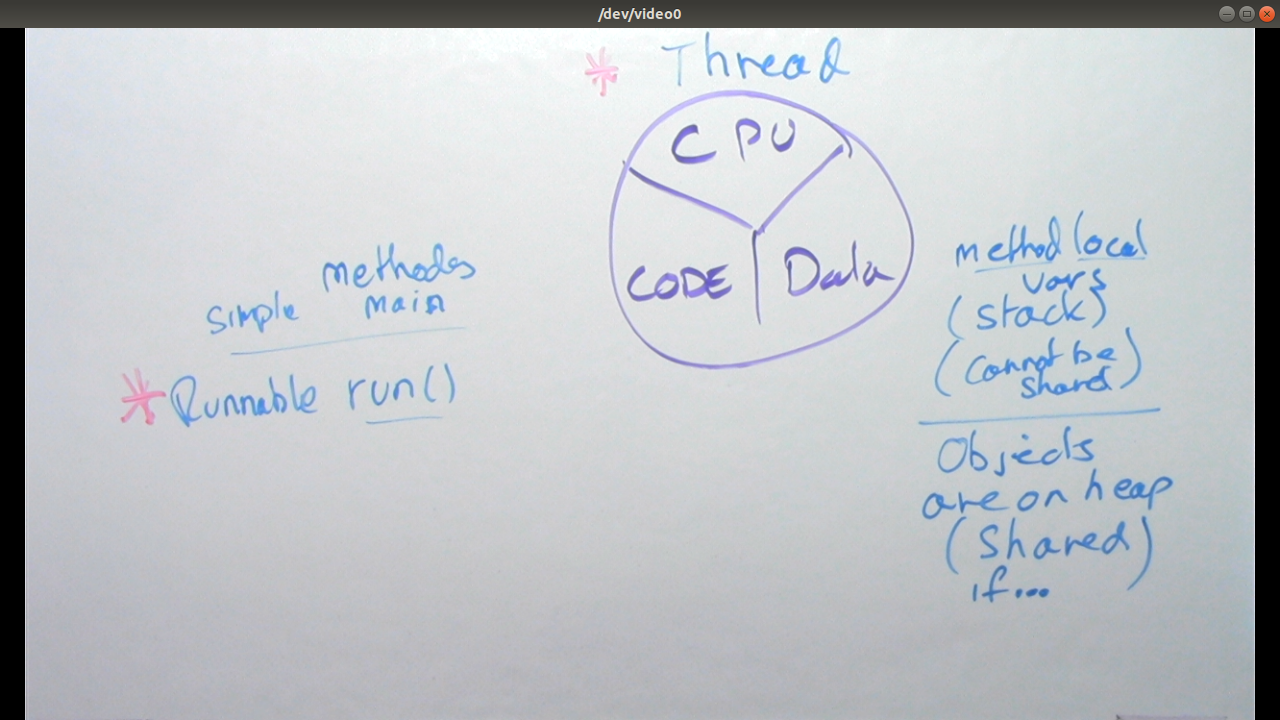 /dev/video0
* Thread
CPU
CODE
Data
simple methodes
main
* Runnable run()
method local
vars
(stack)
(cannot be
shared)
Objects
are on heap
(Shared)
if...